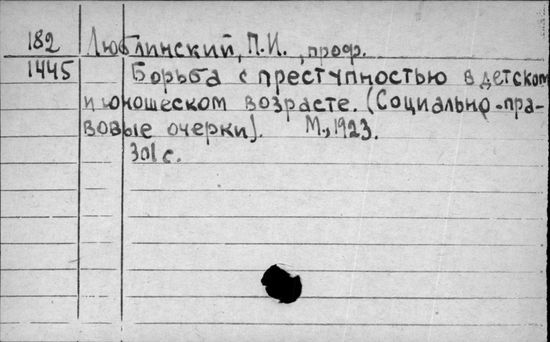 182 Люблинский, П.И., проф.
1445 Борьба с преступностью в детском
и юношеском возрасте. (Социально-пра-
вовые очерки). М., 1923.
301 с.